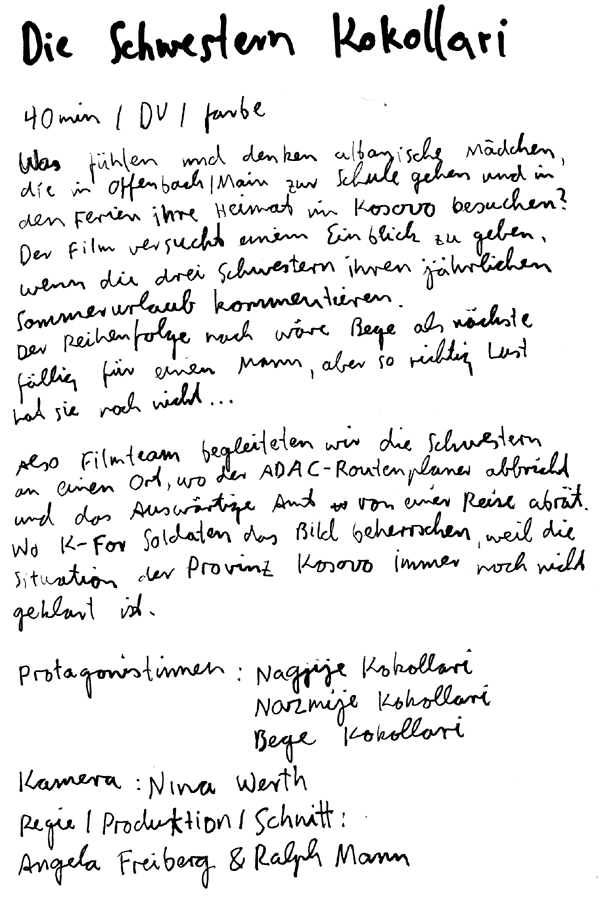 Die Schwestern Kokollari
40min / DV / farbe
Was fühlen und denken albanische Mädchen,
die in Offenbach/Main zur Schule gehen und in
den Ferien ihre Heimat im Kosovo besuchen?
Der Film versucht einem Einblick zu geben,
wenn die drei Schwestern ihren jährlichen
Sommerurlaub kommentieren.
Der Reihenfolge nach wäre Bege als nächste
fällig für einen Mann, aber so richtig Lust
hat sie noch nicht...
Also Filmteam begleiteten wir die Schwestern
an einen Ort, wo der ADAC-Routenplaner abbricht
und das Auswärtige Amt von einer Reise abrät.
Wo K-For Soldaten das Bild beherrschen, weil die
Situation der Provinz Kosovo immer noch nicht
geklärt ist.
Protagonistinnen: Nagjije Kokollari
Nazmije Kokollari
Bege Kokollari
Kamera: Nina Werth
Regie / Produktion / Schnitt:
Angela Freiberg & Ralph Mann